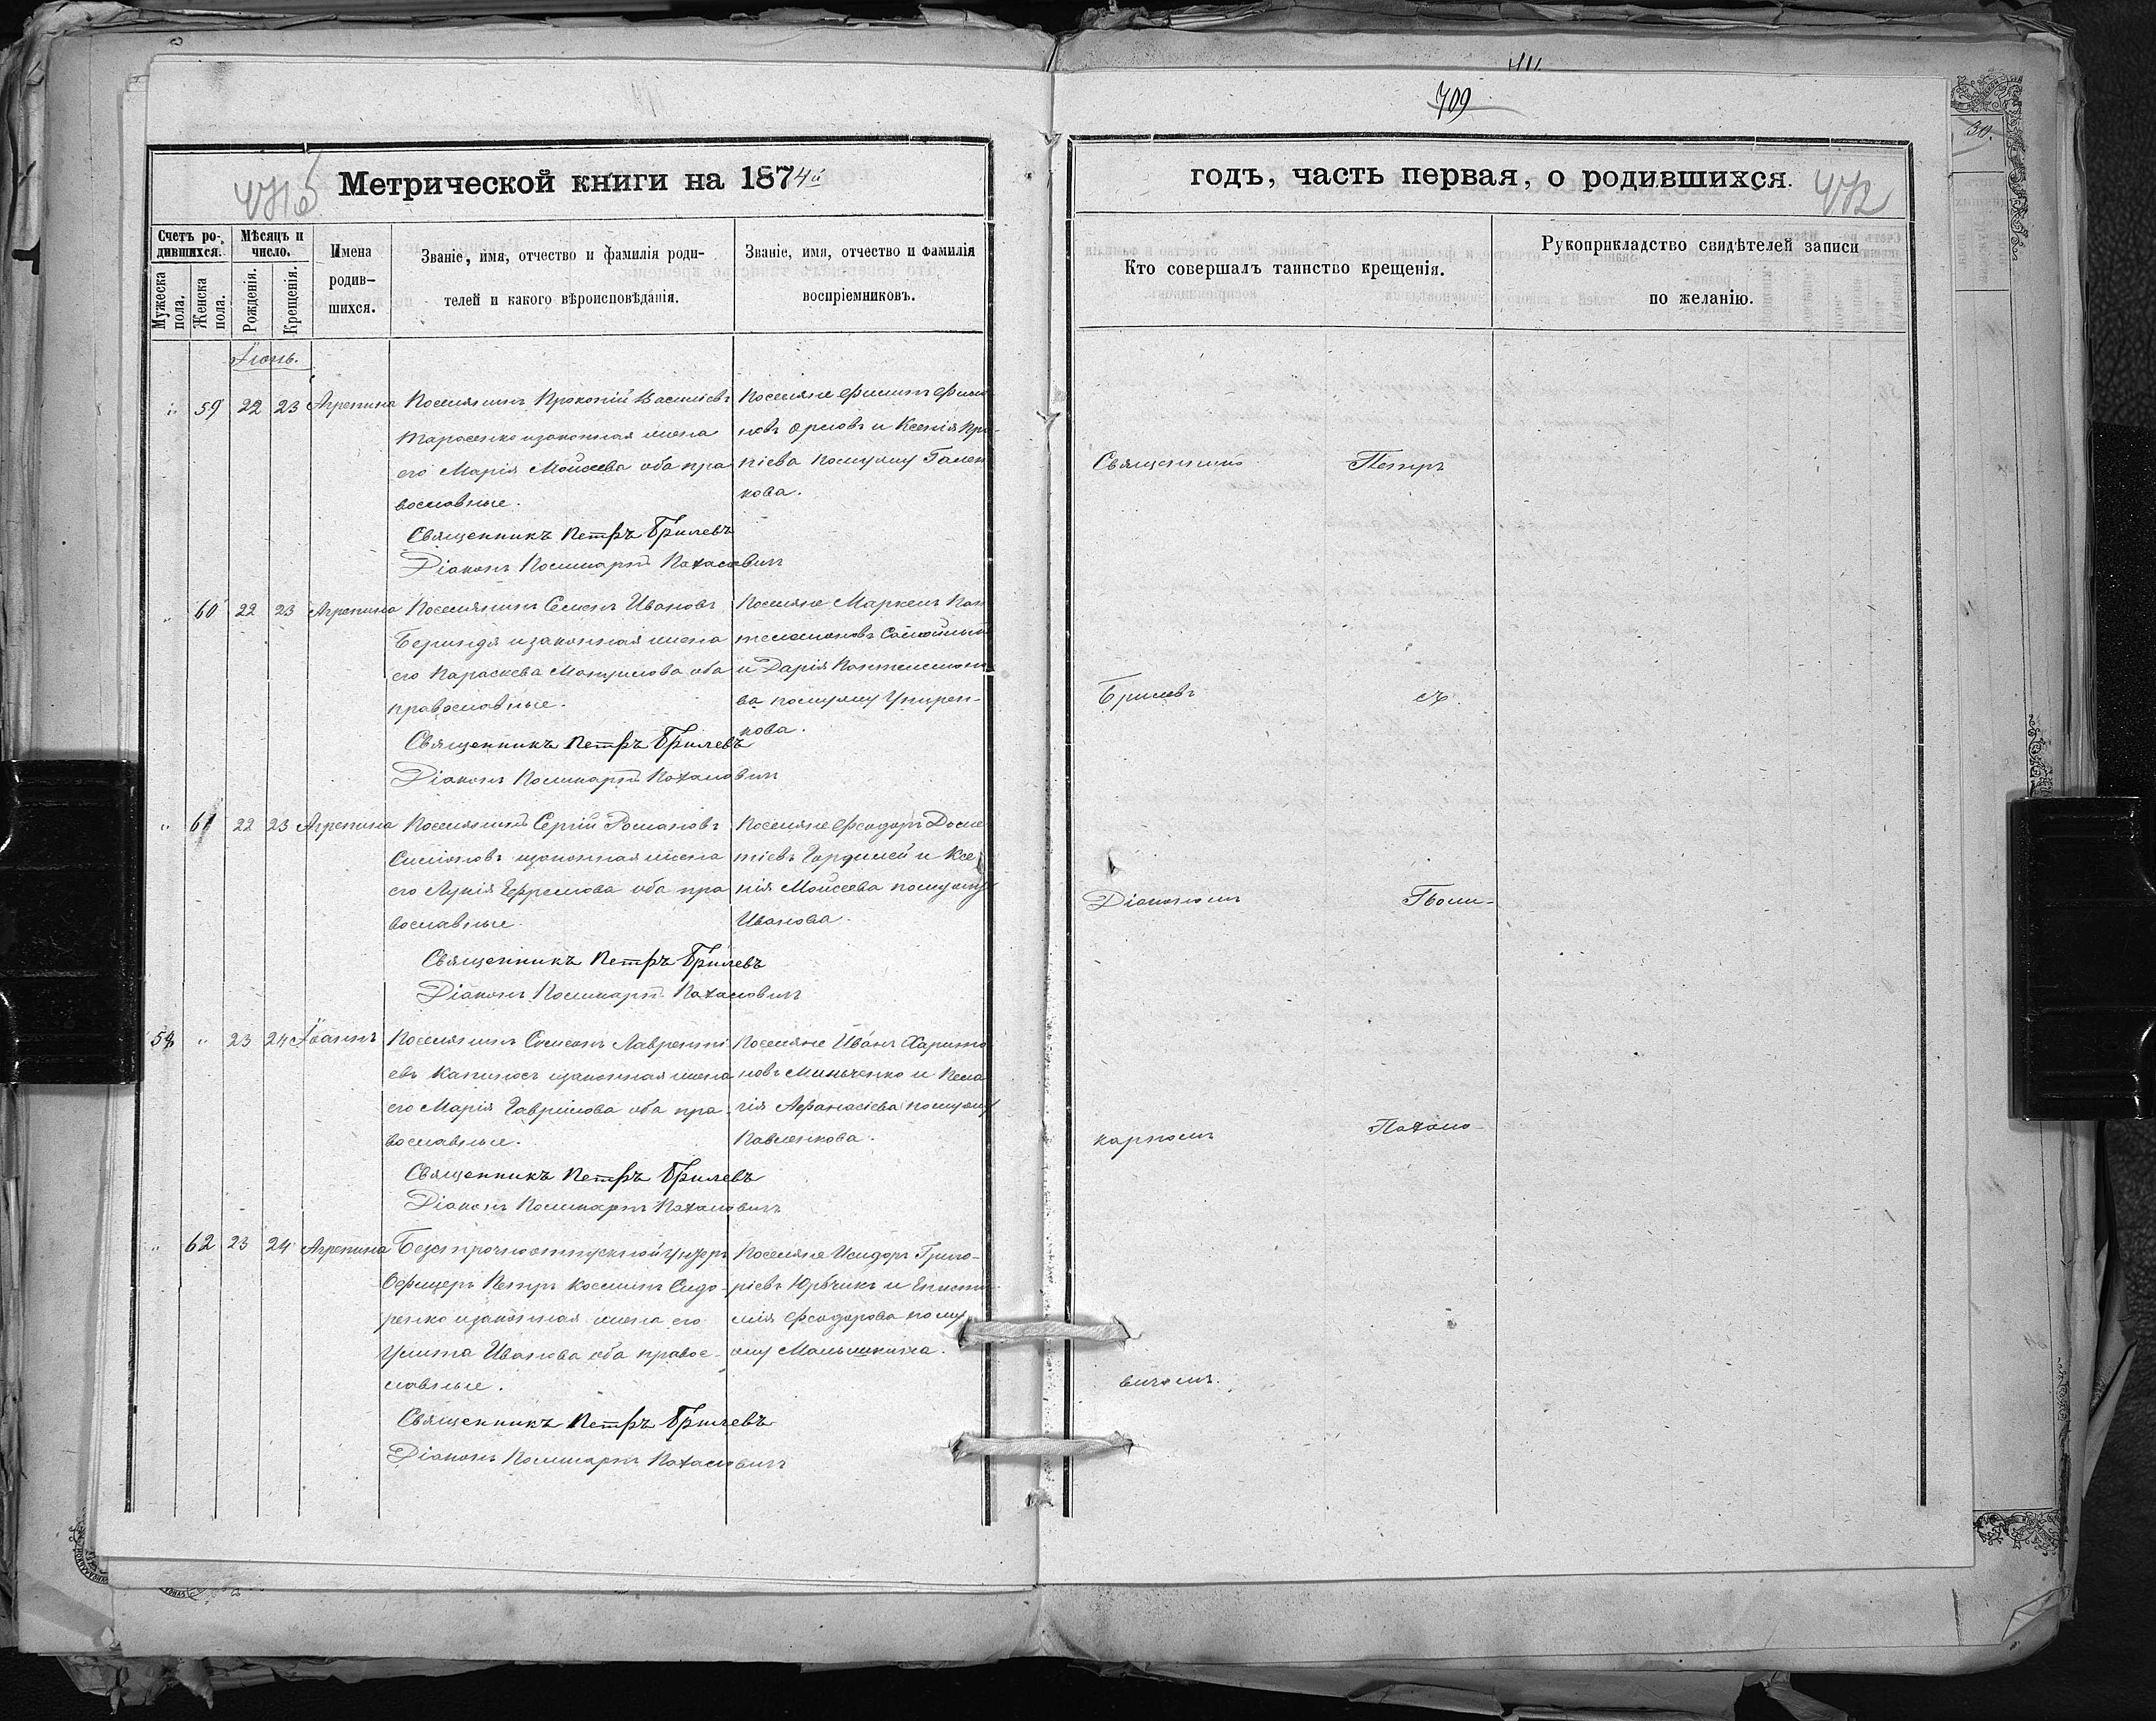 709
Метрической книги на 1874й
годъ, часть первая, о родившихся.
472
Счетъ ро-
дившихся.
Мѣсяцъ и
число.
Мужеска
пола.
Женска
пола.
Рожденія.
Крещенія.
Имена
родив-
шихся.
Званіе, имя, отчество и фамилія роди-
телей и какого вѣроисповѣданія.
Званіе, имя, отчество и фамилія
воспріемниковъ.
Кто совершалъ таинство крещенія.
Рукоприкладство свидѣтелей записи
по желанію.
Іюнь.
" 59 22 23 Агрепина
Поселянинъ Прокопій Василіевъ
Тарасенко изаконная жена
его Марія Моисеева оба пра
вославные.
Священникъ Петръ Брилевъ
Діаконъ Поликарпъ Пахаловичъ
Поселяне Филипъ
новъ Орловъ и Ксенія
піева помужу Гален
кова.
" 60 22 23 Агрепина
Поселянинъ Семенъ Ивановъ
Бериндя изаконная жена
его Параскева Мануилова оба
православные.
Священникъ Петръ Брилевъ
Діаконъ Поликарпъ Пахаловичъ
Поселяне Маркелъ Пан
телемоновъ
и Дарія Пантелемоно
ва помужу
кова.
" 61 22 23 Агрепина
Поселянинъ Сергій Романовъ
Симоновъ изаконная жена
его Лукія Ефремова оба пра
вославные.
Священникъ Петръ Брилевъ
Діаконъ Поликарпъ Пахаловичъ
Поселяне Феодоръ Доме
тіевъ Гордилей и Ксе
нія Моисеева помужу
Иванова.
58 " 23 24 Іоаннъ
Поселянинъ Симеонъ Лавренті
евъ Капиносъ изаконная жена
его Марія Гаврилова оба пра
вославные.
Священникъ Петръ Брилевъ
Діаконъ Поликарпъ Пахаловичъ
Поселяне Иванъ Харито
новъ Миньченко и Пела
гія Афанасіева помужу
Павленкова.
" 62 23 24 Агрепина
Безсрочноотпускной Унтеръ
Офицеръ Петръ Косминъ Сидо
ренко изаконная жена его
Улита Иванова оба правос
лавные.
Священникъ Петръ Брилевъ
Діаконъ Поликарпъ Пахаловичъ
Поселяне Исидоръ Григо-
ріевъ Юрьчикъ и Еписти
мія Феодорова пому
жу Малышкина.
Священникъ Петръ
Брилевъ съ
Діакономъ Поли-
карпомъ Пахало-
вичемъ.